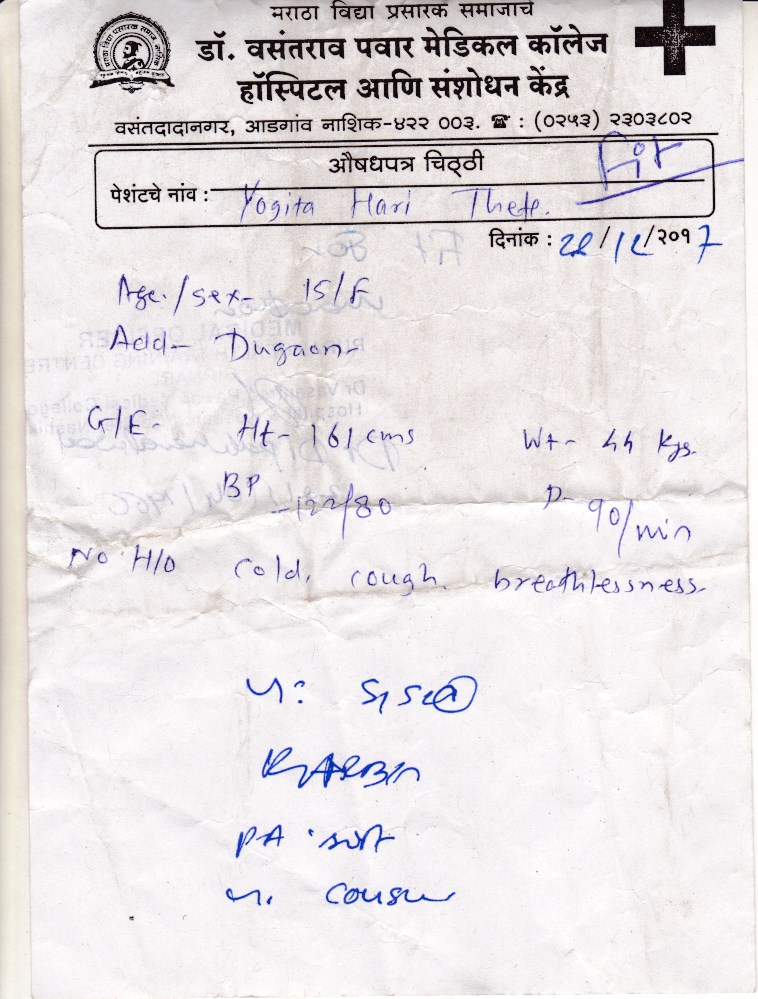 मराठा विद्या प्रसारक समाजाचे
डॉ. वसंतराव पवार मेडिकल कॉलेज
हॉस्पिटल आणि संशोधन केंद्र
वसंतदादानगर, आडगांव नाशिक-४२२ ००३. ☎ : (०२५३) २३०३८०२
औषधपत्र चिठ्ठी
Fit
पेशंटचे नांव : Yogita Hari Thete.
दिनांक : 28/12/२०१7
Age./sex- 15/F
Add- Dugaon-
G/E- Ht- 161 cms Wt- 44 kgs.
BP -122/80 P- 90/min
No H/O cold, cough, breathlessness.
S1 S2
PA soft